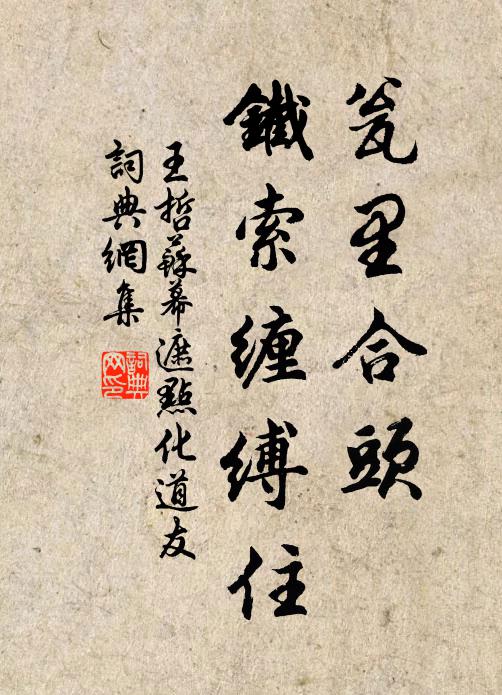 瓮里合頭
鐵索缠缚住
王哲蘇幕遮點化道友
詞典網集
詞典網印